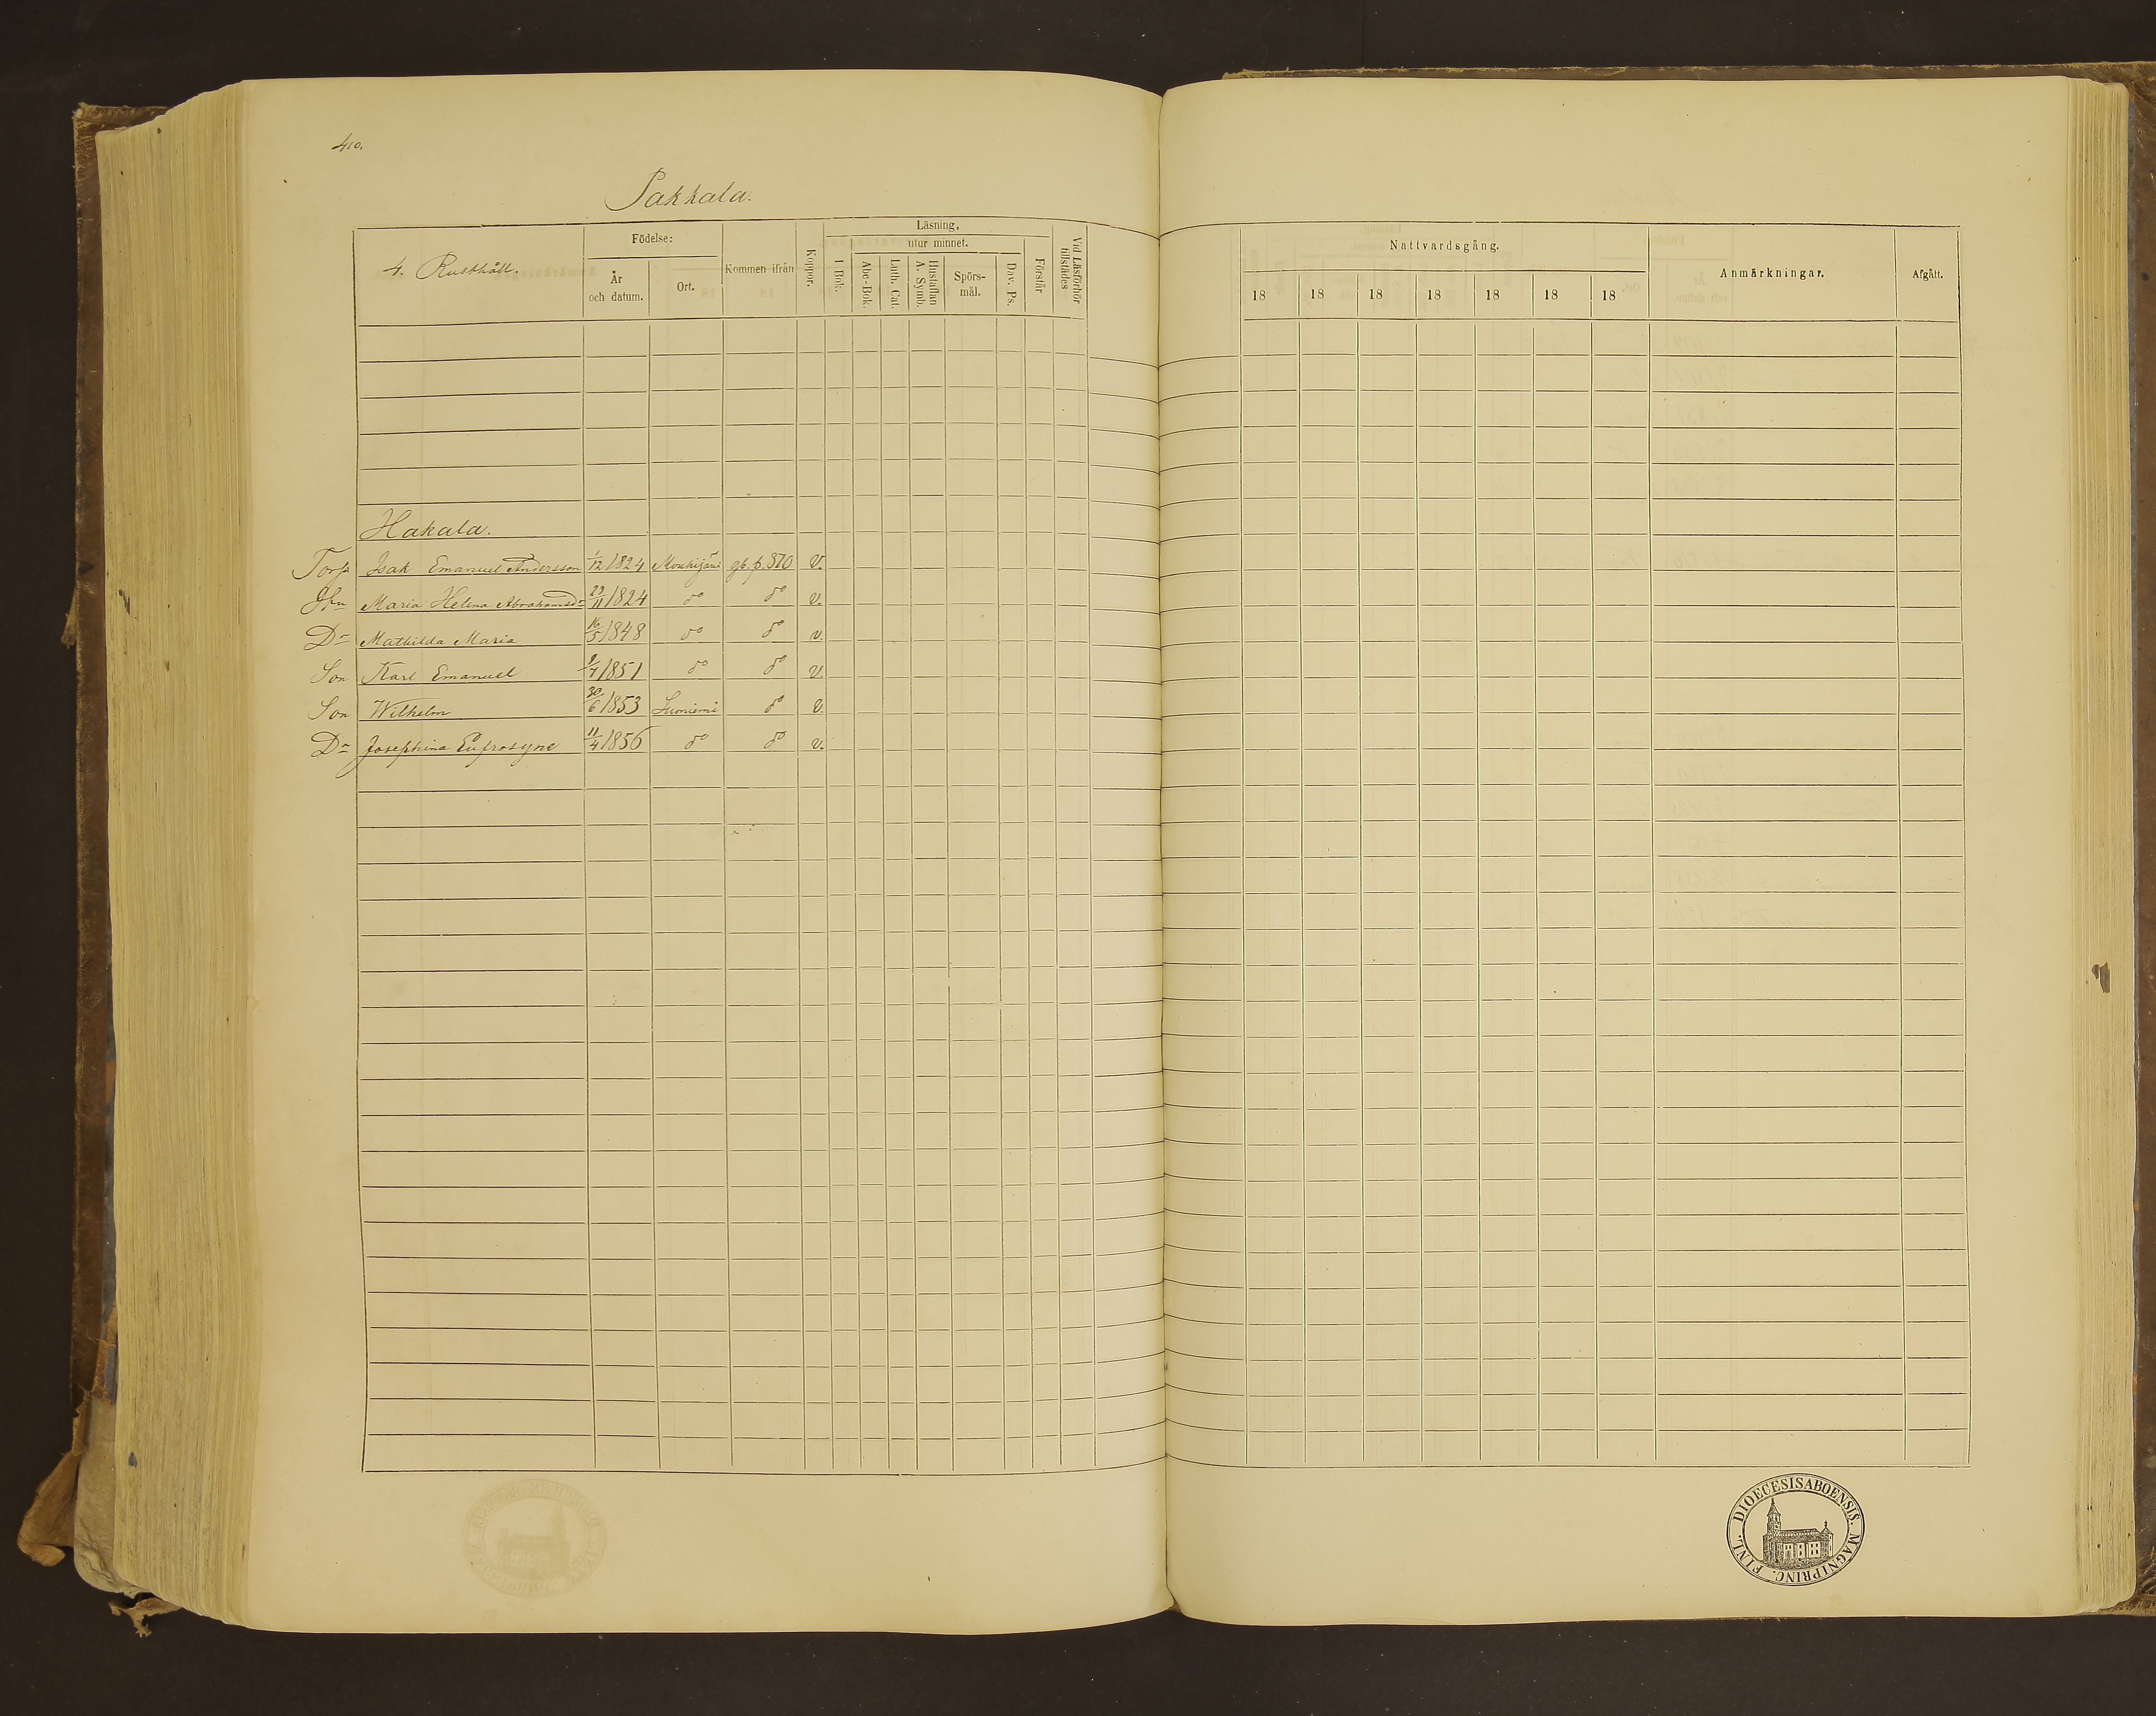 410.
Pakkala.
4. Rusthåll.
Födelse:
År
och datum.
Ort.
Kommen ifrån
Koppor.
Läsning,
utur minnet.
I Bok.
Abc-Bok.
Luth. Cat.
Hustaflan
A. Symb.
Spörs-
mål.
Dav. Ps.
Förstår
Vid Läsförhör
tillstädes
Nattvardsgång.
18 18 18 18 18 18 18
Anmärkningar.
Afgått.
Hakala.
Torp Isak Emanuel Andersson 1/12 1824 Mouhijärvi gb. p. 370 v.
Hu Maria Helena Abrahamsdr 29/11 1824 do do v.
Dr Mathilda Maria 16/5 1848 do do v.
Son Karl Emanuel 1851 do do v.
Son Wilhelm 30/6 1853 Suoniemi do v.
Dr Josephina Eufrosyne 11/4 1856 do do v.
DIOECESIS ABOENSIS. MAGNI PRINC. FINL.